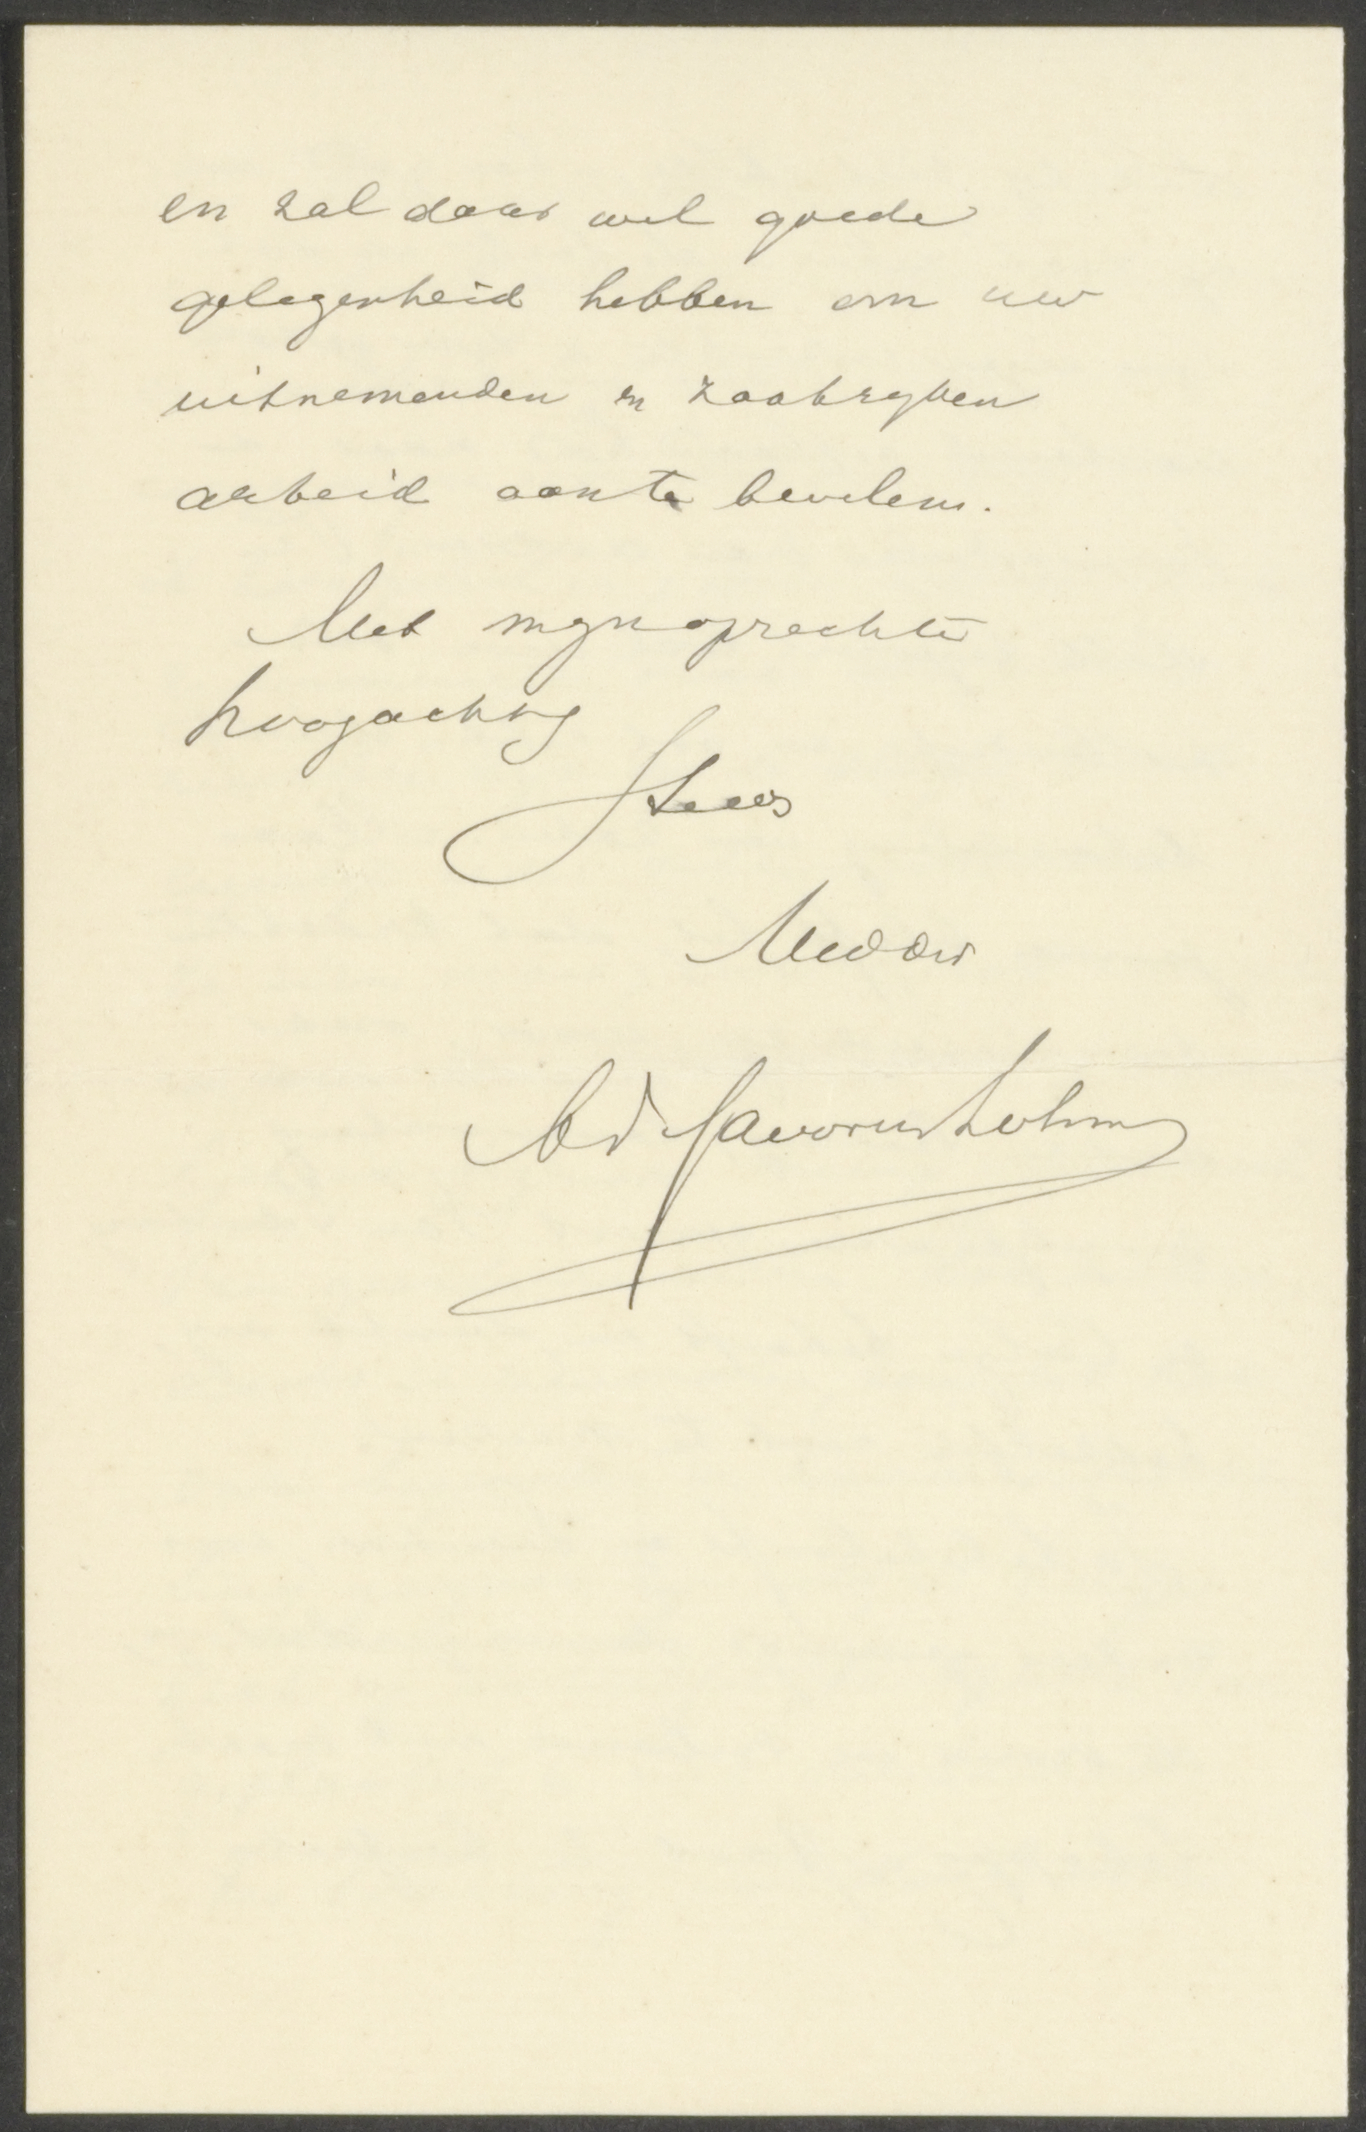 en zal daar wel goede
gelegenheid hebben om uw
uitnemenden en zaakrijken
arbeid aan te bevelen.
Met mijn oprechte
hoogachting
Steeds
Uwdw
Ad Savornin Lohman